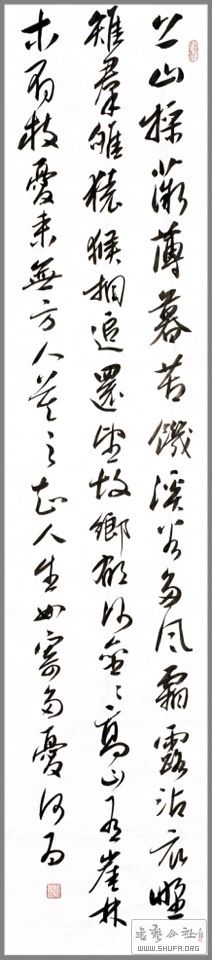 上山採薇薄暮苦饑溪谷多風霜露沾衣野
雉羣雊猿猴相追還望故鄉鬱何壘〻高山有崖林
木有枝憂來無方人莫之知人生如寄多憂何為
书艺公社
WWW.SHUFA.ORG